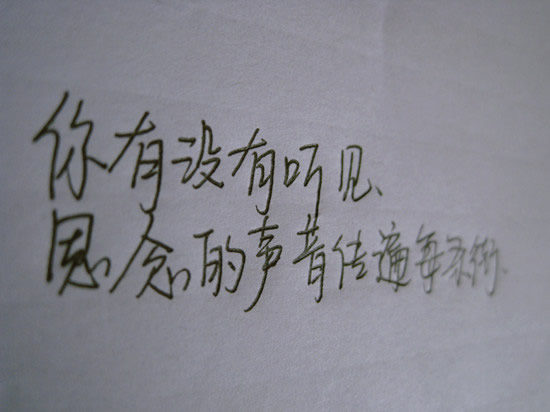 你有没有听见、
思念的声音传遍每条街、